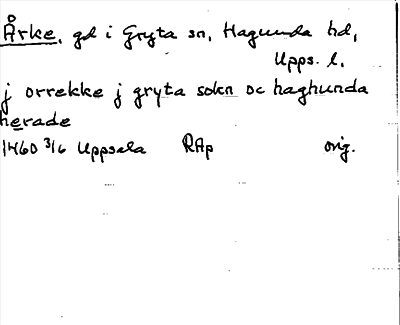 Årke, gd i Gryta sn, Hagunda hd,
Upps. l.
j orrekke j gryta sokn oc haghunda
herade
1460 3/6 Uppsala RAp orig.